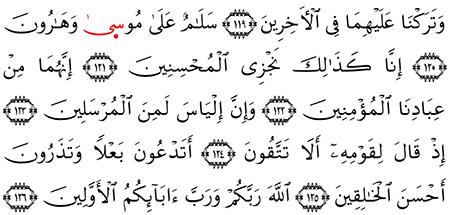 وَتَرَكْنَا عَلَيْهِمَا فِى ٱلْأَخِرِينَ ﴿١١٩﴾ سَلَـٰمٌ عَلَىٰ مُوسَىٰ وَهَـٰرُونَ
﴿١٢٠﴾ إِنَّا كَذَٰلِكَ نَجْزِى ٱلْمُحْسِنِينَ ﴿١٢١﴾ إِنَّهُمَا مِنْ
عِبَادِنَا ٱلْمُؤْمِنِينَ ﴿١٢٢﴾ وَإِنَّ إِلْيَاسَ لَمِنَ ٱلْمُرْسَلِينَ ﴿١٢٣﴾
إِذْ قَالَ لِقَوْمِهِۦٓ أَلَا تَتَّقُونَ ﴿١٢٤﴾ أَتَدْعُونَ بَعْلًا وَتَذَرُونَ
أَحْسَنَ ٱلْخَـٰلِقِينَ ﴿١٢٥﴾ ٱللَّهَ رَبَّكُمْ وَرَبَّ ءَابَآئِكُمُ ٱلْأَوَّلِينَ ﴿١٢٦﴾